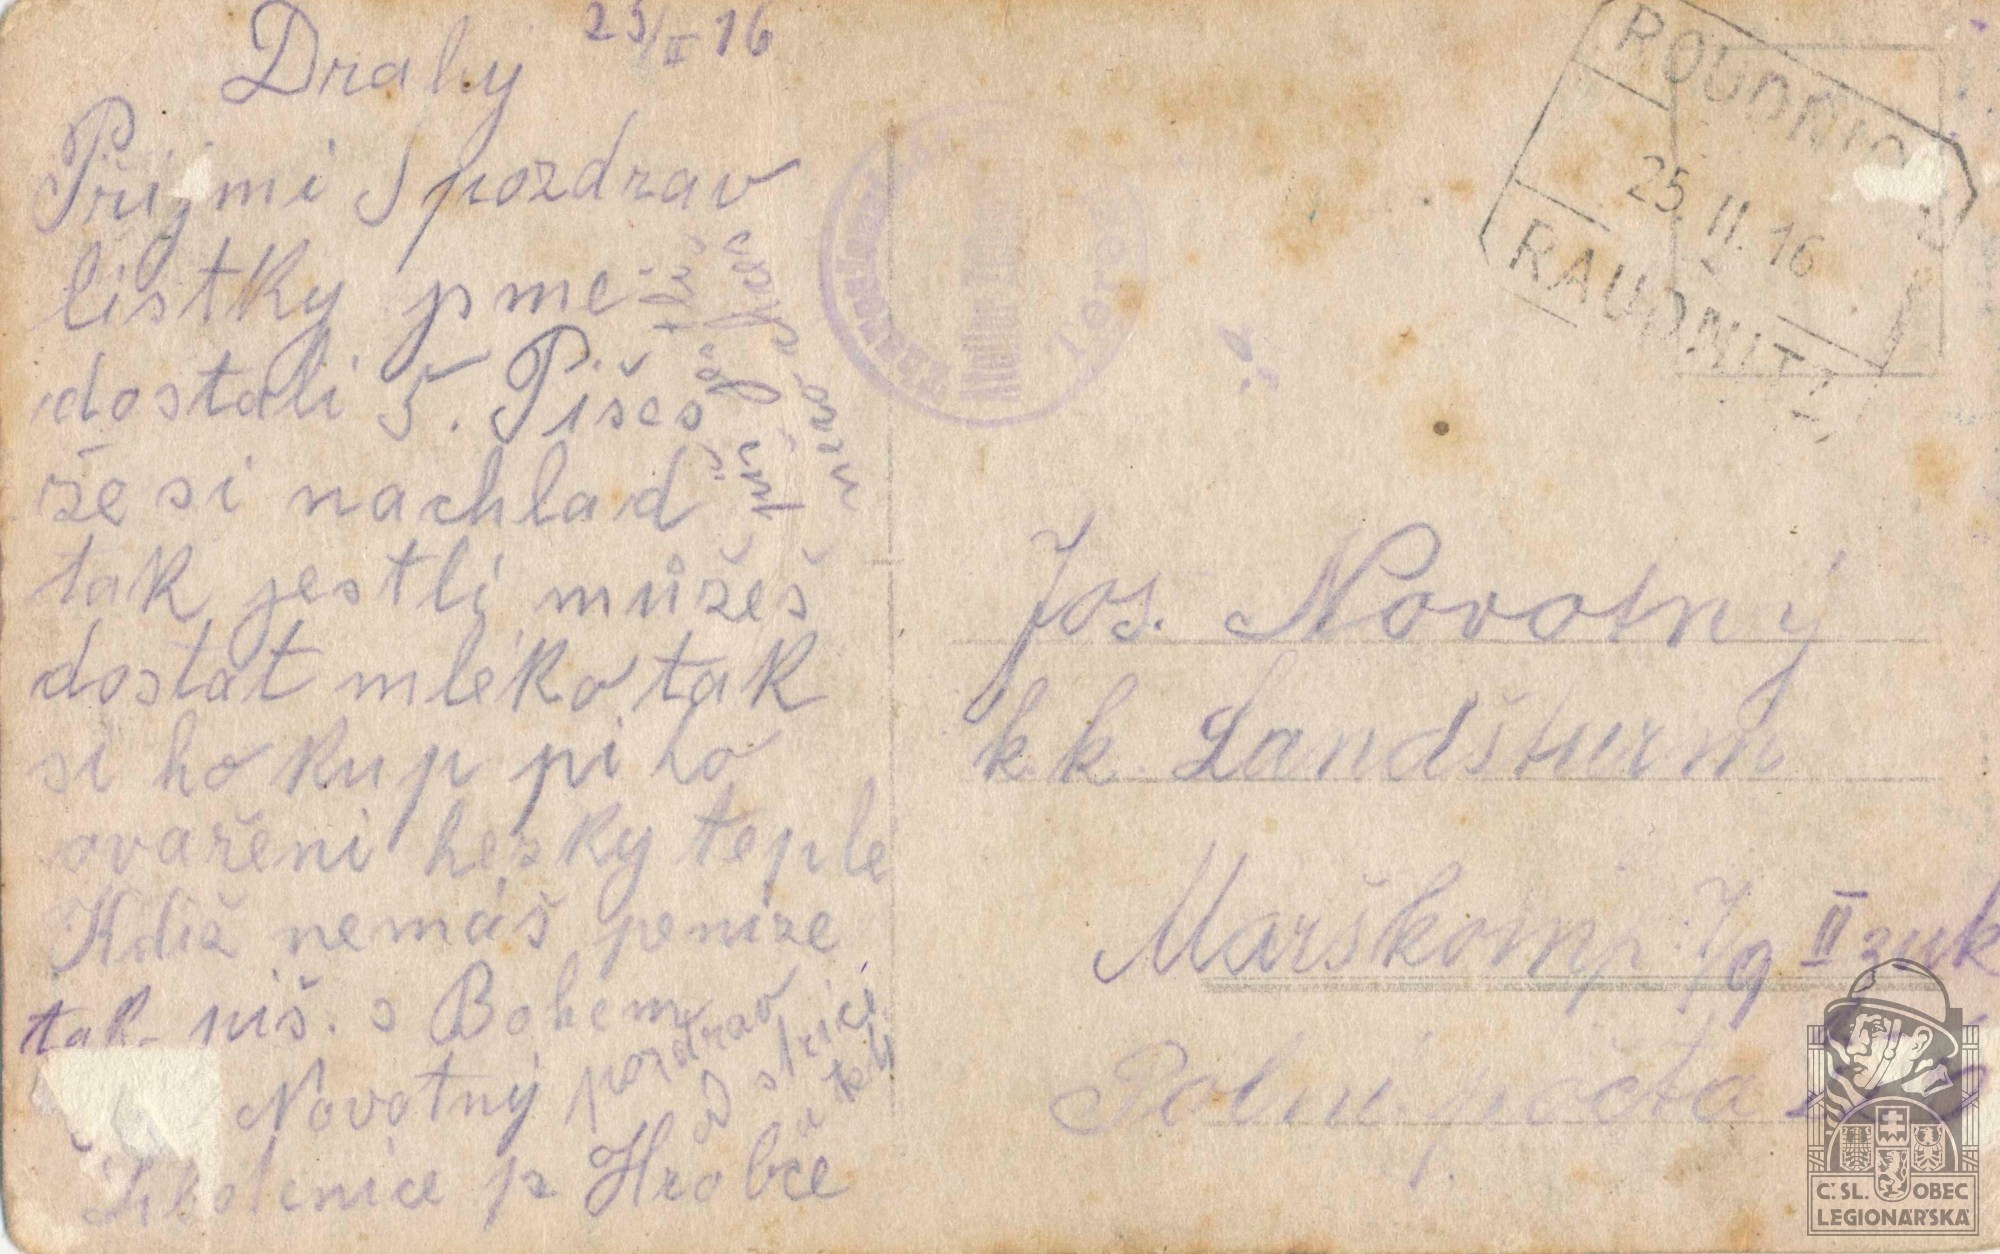 25/II 16
Drahý
Přijmi pozdrav
listky sme
dostali 5. Pišeš
že si nachlad
tak jestli můžeš
dostat mléko tak
si ho kup pi ho
ovařeni hesky teplé
Kdiž nemáš penize
tak piš. s Bohem
Novotný
pozdrav
od strici
a tety
Židovice p Hrobce
ROUDNICE
25. II. 16
RAUDNITZ
Jos. Novotný
k. k. Landšturm
Marškomp 7/9 II zuk
Polni počta
Č. SL. OBEC
LEGIONÁŘSKÁ